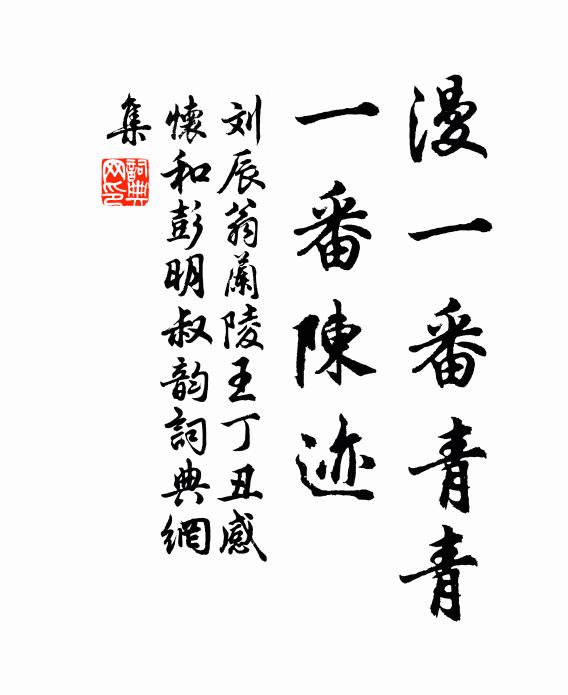 漫一番青青
一番陳迹
刘辰翁蘭陵王丁丑感
懷和彭明叔韵詞典網
集
詞典网印